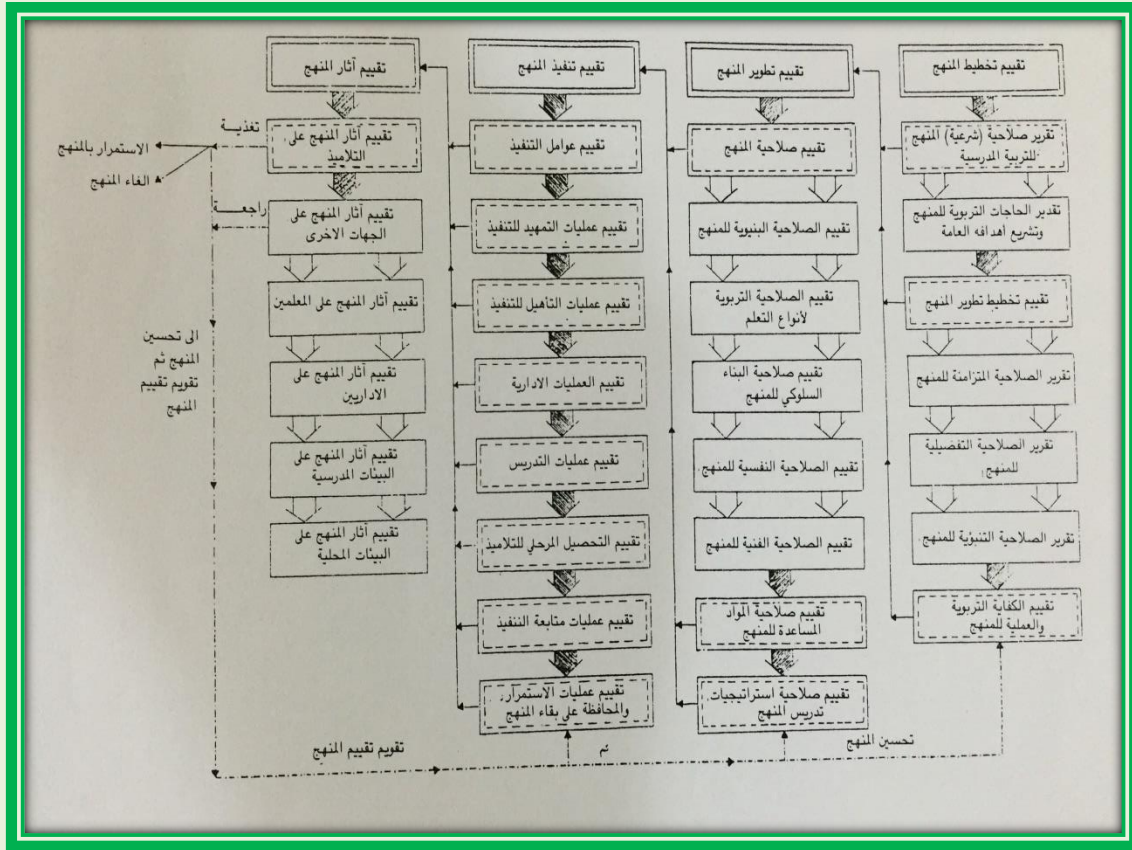 تقييم تخطيط المنهج
تقرير صلاحية (شرعية) المنهج
للتربية المدرسية
تقدير الحاجات التربوية للمنهج
وتشريع أهدافه العامة
تقييم تخطيط تطوير المنهج
تقرير الصلاحية المتزامنة للمنهج
تقرير الصلاحية التفضيلية
للمنهج
تقرير الصلاحية التنبؤية للمنهج
تقييم الكفاية التربوية
والعملية للمنهج
تقييم تطوير المنهج
تقييم صلاحية المنهج
تقييم الصلاحية البنيوية للمنهج
تقييم الصلاحية التربوية
لأنواع التعلم
تقييم صلاحية البناء
السلوكي للمنهج
تقييم الصلاحية النفسية للمنهج
تقييم الصلاحية الفنية للمنهج
تقييم صلاحية المواد
المساعدة للمنهج
تقييم صلاحية استراتيجيات
تدريس المنهج
تقييم تنفيذ المنهج
تقييم عوامل التنفيذ
تقييم عمليات التمهيد للتنفيذ
تقييم عمليات التأهيل للتنفيذ
تقييم العمليات الادارية
تقييم عمليات التدريس
تقييم التحصيل المرحلي للتلاميذ
تقييم عمليات متابعة التنفيذ
تقييم عمليات الاستمرار
والمحافظة على بقاء المنهج
تقييم آثار المنهج
تقييم آثار المنهج على
التلاميذ
تقييم آثار المنهج على
الجهات الاخرى
تقييم آثار المنهج على المعلمين
تقييم آثار المنهج على
الاداريين
تقييم آثار المنهج على
البيئات المدرسية
تقييم آثار المنهج على
البيئات المحلية
تغذيــة
راجعــــة
الاستمرار بالمنهج
الغاء المنهج
الى تحسين
المنهج ثم
تقويم تقييم
المنهج
تحسين المنهج
ثم
تقويم تقييم المنهج